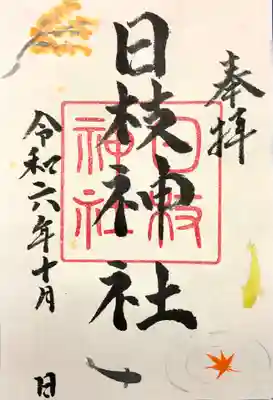 奉拝
日枝神社
日枝神社
令和六年十月 日